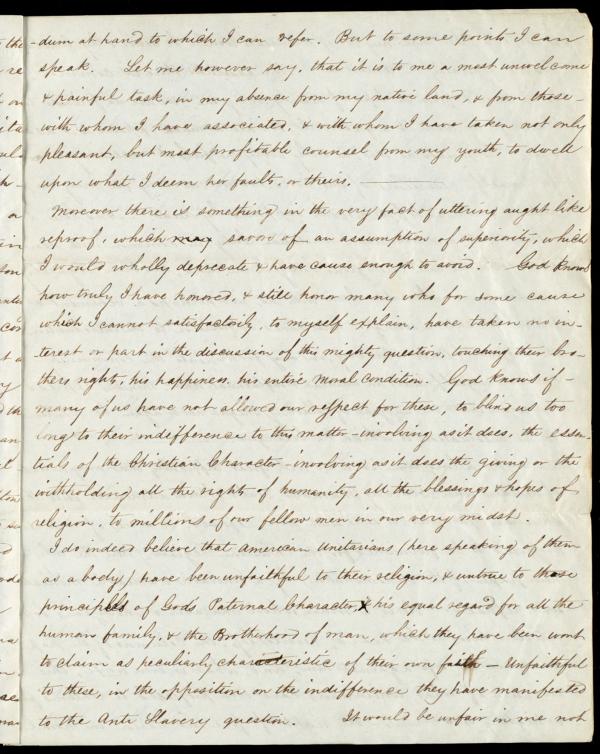 -dum at hand to which I can refer. But to some points I can
speak. Let me however say, that it is to me a most unwelcome
& painful task, in my absence from my native land, & from those-
with whom I have associated, & with whom I have taken not only
pleasant, but most profitable counsel from my youth, to dwell
upon what I deem her faults, or theirs. ———
Moreover there is something in the very fact of uttering aught like
reproof, which may savor of an assumption of superiority, which
I would wholly deprecate & have cause enough to avoid. God knows
how truly I have honored, & still honor many who for some cause
which I cannot satisfactorily, to myself explain, have taken no in-
-terest or part in the discussion of this mighty question, touching their bro-
thers right, his happiness, his entire moral condition. God knows if-
many of us have not allowed our respect for these, to blind us too
long to their indifference to this matter-involving as it does, the essen-
tials of the Christian Character-involving as it does the giving or the
withholding all the rights of humanity, all the blessings & hopes of
religion, to millions of our fellow men in our very midst.
I do indeed believe that American Unitarians (here speaking of them
as a body) have been unfaithful to their religion, & untrue to those
principles of God's Paternal Character, & his equal regard for all the
human family, & the Brotherhood of man, which they have been wont
to claim as peculiarly characteristic of their own faith - Unfaithful
to these, in the opposition or the indifference they have manifested
to the Anti Slavery question. It would be unfair in me not